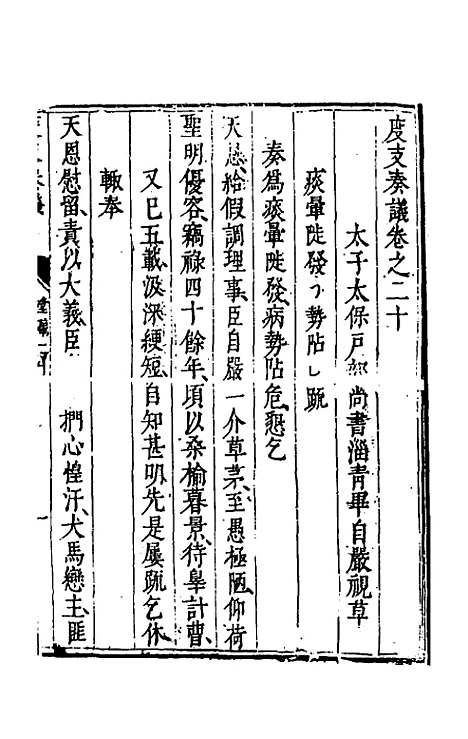 度支奏議卷之二十
太子太保戶部尚書淄青畢自嚴視草
痰暈陡發勢阽疏
奏爲痰暈陡發病勢阽危懇乞
天恩給假調理事臣自嚴一介草茅至愚極陋仰荷
聖明優容竊祿四十餘年頃以桑榆暮景待辠計曹
又已五載汲深綆短自知甚明先是屢疏乞休
輙奉
天恩慰留責以大義臣捫心惶汗犬馬戀主匪